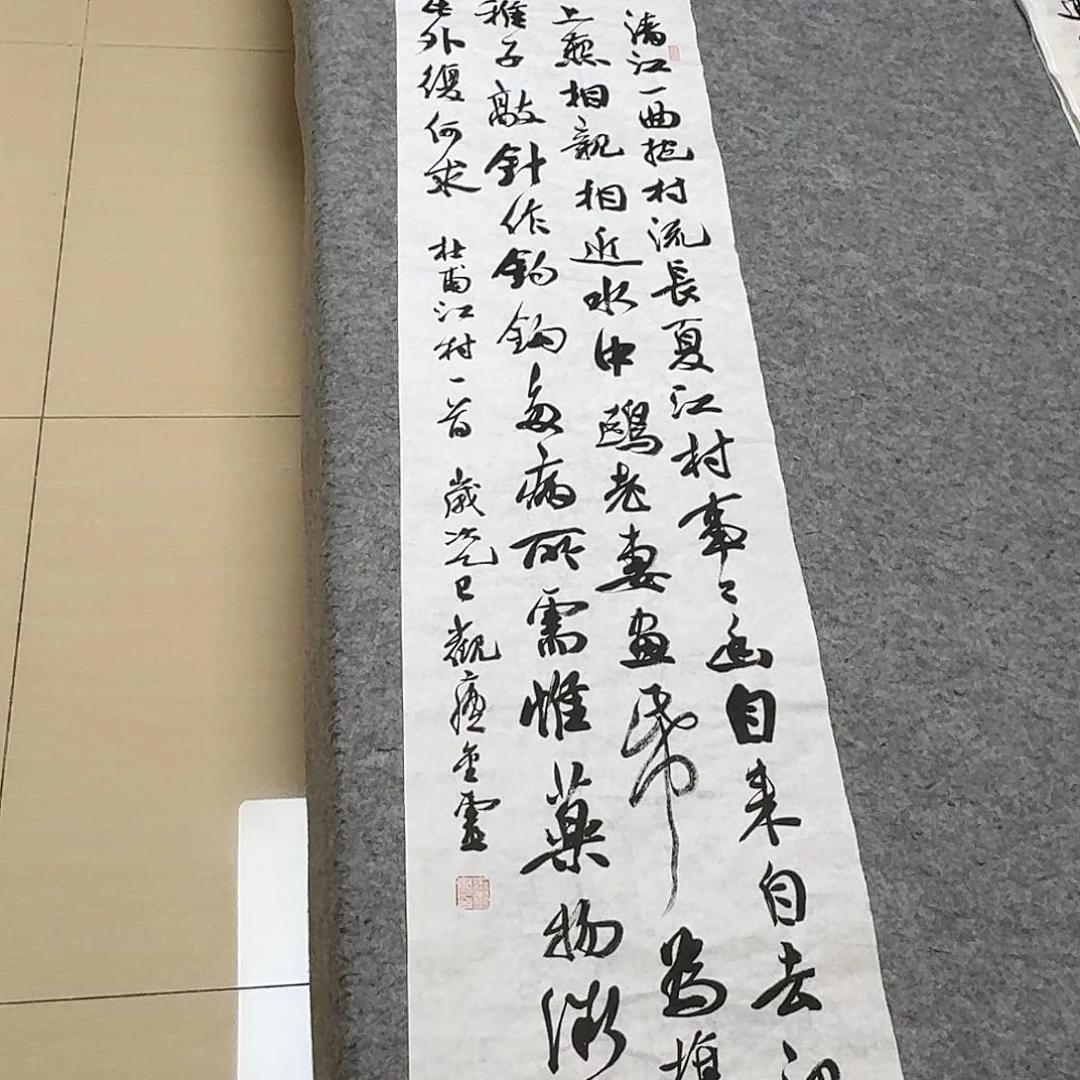 清江一曲抱村流長夏江村事々幽自来自去
上燕相親相近水中鷗老妻画帋為
稚子敲針作釣鈎多病所需惟薬物微
外復何求
杜甫江村一首 歲次乙巳觀